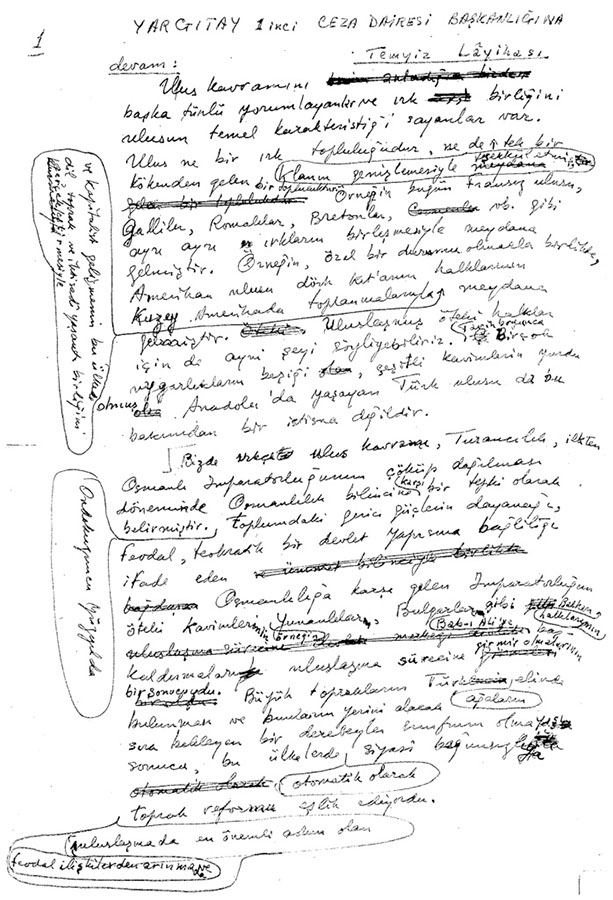 1
YARGITAY 1 inci CEZA DAİRESİ BAŞKANLIĞINA
Temyiz Lâyihası
devam:
Ulus kavramını
başka türlü yorumlayanlar ve ırk birliğini
ulusun temel karakteristiği sayanlar var.
Ulus ne bir ırk topluluğudur, ne de tek bir
kökenden gelen bir klanın genişlemesiyle
toplumdur. Örneğin bugün Fransız ulusu,
Galliler, Romalılar, Bretonlar, vb. gibi
ayrı ayrı ırkların birleşmesiyle meydana
gelmiştir. Örneğin, özel bir durumu olmakla birlikte,
Amerikan ulusu dört kıt'anın halklarının
Kuzey Amerikada toplanmalarıyla meydana
gelmiştir. Uluslaşmış öteki halklar
için de aynı şeyi söyliyebiliriz. Tarih boyunca Birçok
uygarlıkların beşiği olmuş, çeşitli kavimlerin yurdu
Anadolu'da yaşayan Türk ulusu da bu
bakımından bir istisna değildir.
ve kapitalist gelişmenin bu ülkede
dil, toprak ve iktisadi yaşantı birliğini
gerçekleştirmesiyle
Bizde ulus kavramı, Turancılık, ilkten
Osmanlı İmparatorluğunun çöküp dağılması
döneminde Osmanlılık bilincine karşı bir tepki olarak
belirmiştir. Toplumdaki gerici güçlerin dayanağı,
feodal, teokratik bir devlet yapısına bağlılığı
ifade eden
Osmanlılığa karşı gelen İmparatorluğun
öteki kavimlerinin, örneğin Yunanlılar, Bulgarlar gibi Balkan halklarının
Bab-ı Ali'ye baş
kaldırmaları uluslaşma sürecine girmiş olmalarının
bir sonucuydu. Büyük toprakların Türk elinde
bulunması ve bunların yerini alacak ağaların
sıra bekleyen bir derebeyler sınıfının olmayışı
sonucu, bu ülkelerde, siyasi bağımsızlığa
otomatik olarak
toprak reformu eşlik ediyordu.
Ondokuzuncu yüzyılda
uluslaşmada en önemli adım olan
feodal ilişkilerden arınmada